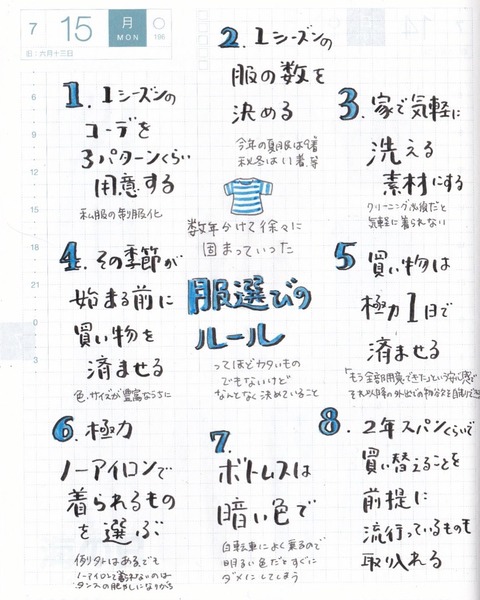 7 15 月 MON
旧:六月十三日
196
1. 1シーズンの
コーデを
3パターンくらい
用意する
私服の制服化
2. 1シーズンの
服の数を
決める
今年の夏服は9着
秋冬は11着等
3. 家で気軽に
洗える
素材にする
クリーニング必須だと
気軽に着られない
数年かけて徐々に
固まっていった
4. その季節が
始まる前に
買い物を
済ませる
色、サイズが豊富なうちに
服選びの
ルール
ってほどカタいもの
でもないけど
なんとなく決めていること
5 買い物は
極力1日で
済ませる
「もう全部用意できた」という安心感で
それ以降の外出での物欲を
6. 極力
ノーアイロンで
着られるもの
を選ぶ
例外はあるでも
ノーアイロンで着られないのは
タンスの肥やしになりがち
7.
ボトムスは
暗い色で
自転車によく乗るので
明るい色だとすぐに
ダメにしてしまう
8. 2年スパンくらいで
買い替えることを
前提に
流行っているものも
取り入れる
6
9
12
15
18
21
0
3